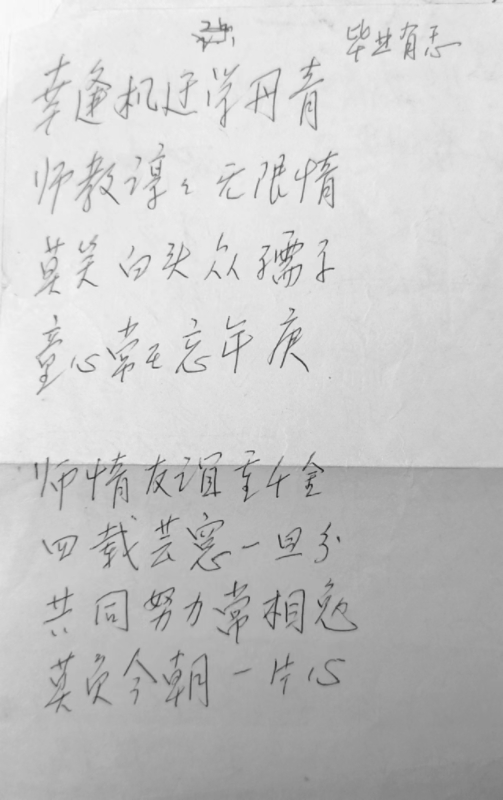 毕业有志
幸逢机运学丹青
师教谆々无限情
莫笑白头众孺子
童心常在忘年庚
师情友谊重千金
四载芸窓一旦分
共同努力常相勉
莫负今朝一片心